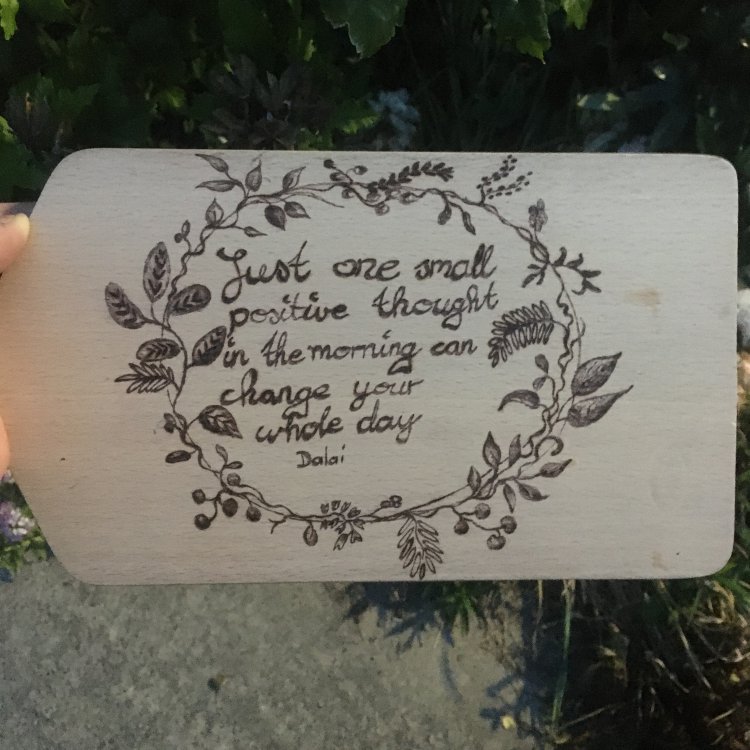 Just one small
positive thought
in the morning can
change your
whole day
Dalai